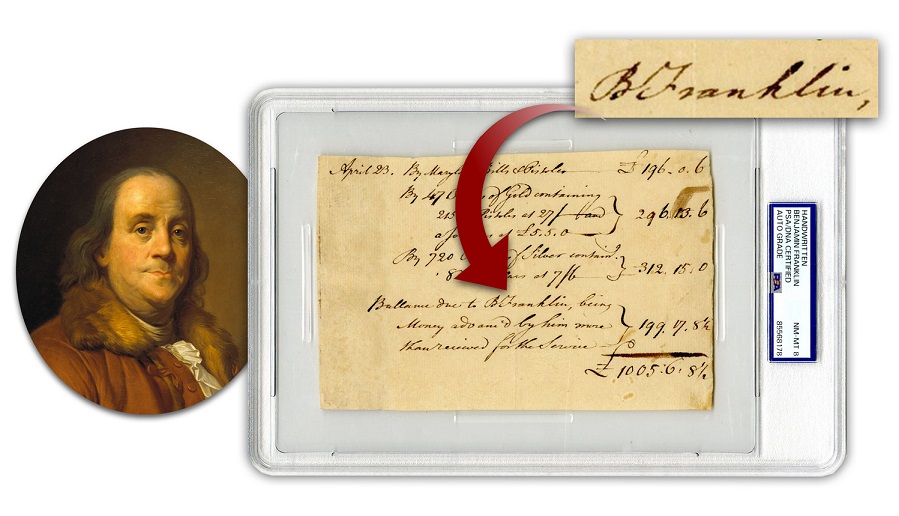 B Franklin,
April 23. By Pistoles £ 196 . 0 . 6
By of Gold containing
at 27/ and 296.13.6
at £5.5.0
By 720 of Silver contain.g
at 7/6 312.15.0
Ballance due to B Franklin, being
Money advanc'd by him more 199.17.8½
than received for the Service
£ 1005:6:8½
HANDWRITTEN
BENJAMIN FRANKLIN
PSA/DNA CERTIFIED
AUTO GRADE NM-MT 8
PSA 85568178